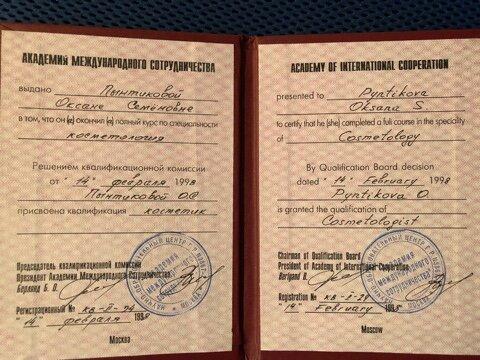 АКАДЕМИЯ МЕЖДУНАРОДНОГО СОТРУДНИЧЕСТВА
выдано Пынтиковой
Оксане Семёновне
в том, что он (а) окончил (а) полный курс по специальности
косметология
Решением квалификационной комиссии
от "14" февраля 1998
Пынтиковой О.С
присвоена квалификация косметик
Председатель квалификационной комиссии
Президент Академии Международного Сотрудничества
Берлянд Б. О.
Регистрационный № КВ-II-
"14" февраля 1998
Москва
ACADEMY OF INTERNATIONAL COOPERATION
presented to Pyntikova
Oksana S
to certify that he (she) completed a full course in the speciality
of Cosmetology
By Qualification Board decision
dated "14" February 1998
Pyntikova O.
is granted the qualification of
Cosmetologist
Chairman of Qualification Board
President of Academy of International Cooperation
Registration № КВ-II-
"14" February 1998
Moscow